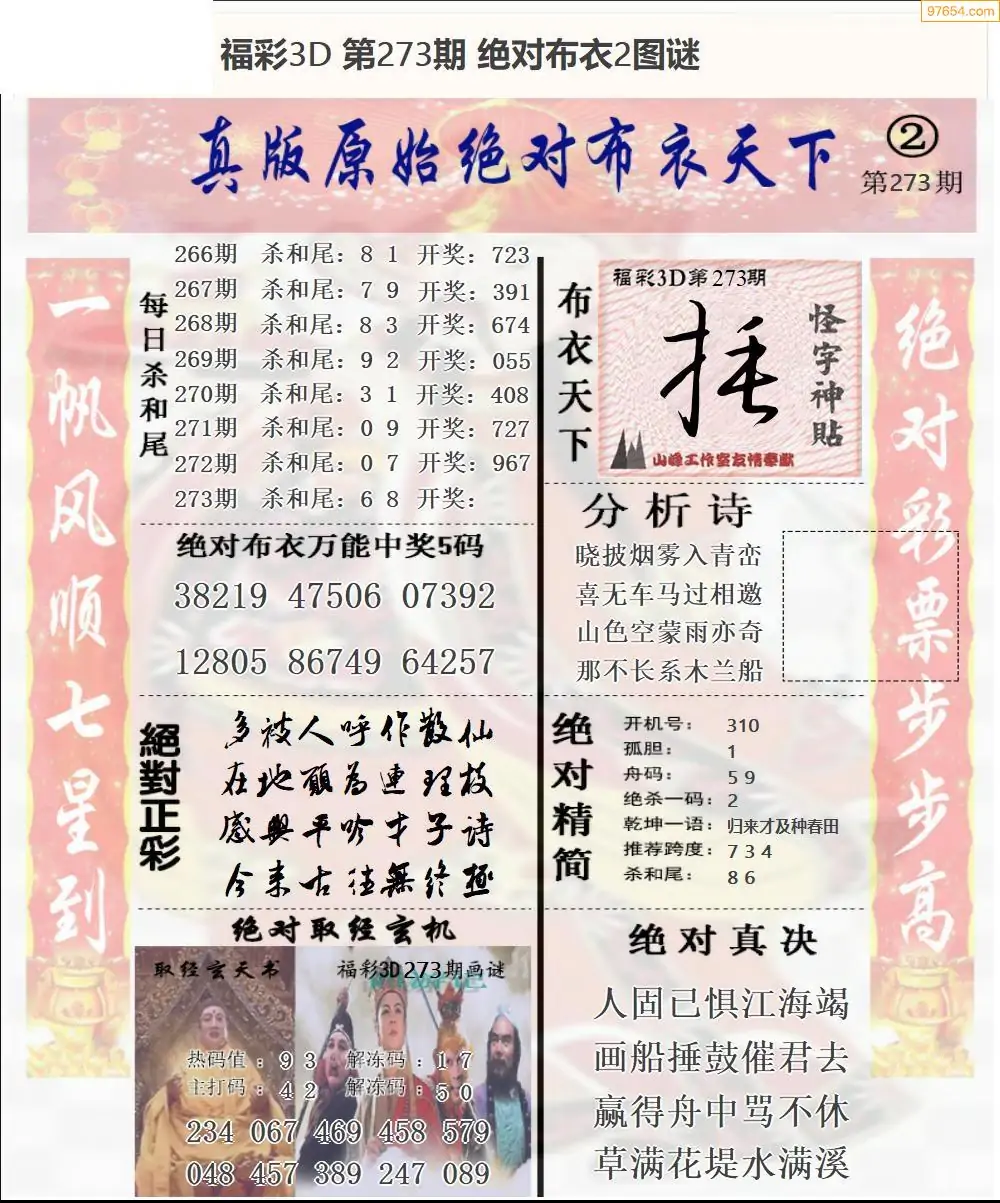 97654.com
福彩3D 第273期 绝对布衣2图谜
真版原始绝对布衣天下
②
第273期
一帆风顺七星到
每日杀和尾
266期 杀和尾：8 1 开奖：723
267期 杀和尾：7 9 开奖：391
268期 杀和尾：8 3 开奖：674
269期 杀和尾：9 2 开奖：055
270期 杀和尾：3 1 开奖：408
271期 杀和尾：0 9 开奖：727
272期 杀和尾：0 7 开奖：967
273期 杀和尾：6 8 开奖：
绝对布衣万能中奖5码
38219 47506 07392
12805 86749 64257
絕對正彩
多被人呼作散仙
在地願為連理枝
感興平吟才子诗
今来古往無终極
绝对取经玄机
取经玄天书
福彩3D273期画谜
热码值：9 3 解冻码：1 7
主打码：4 2 解冻码：5 0
234 067 469 458 579
048 457 389 247 089
布衣天下
福彩3D第273期
捶
怪字神貼
山峰工作室友情奉献
分析诗
晓披烟雾入青峦
喜无车马过相邀
山色空蒙雨亦奇
那不长系木兰船
绝对精简
开机号：310
孤胆：1
舟码：5 9
绝杀一码：2
乾坤一语：归来才及种春田
推荐跨度：7 3 4
杀和尾：8 6
绝对真决
人固已惧江海竭
画船捶鼓催君去
赢得舟中骂不休
草满花堤水满溪
绝对彩票步步高